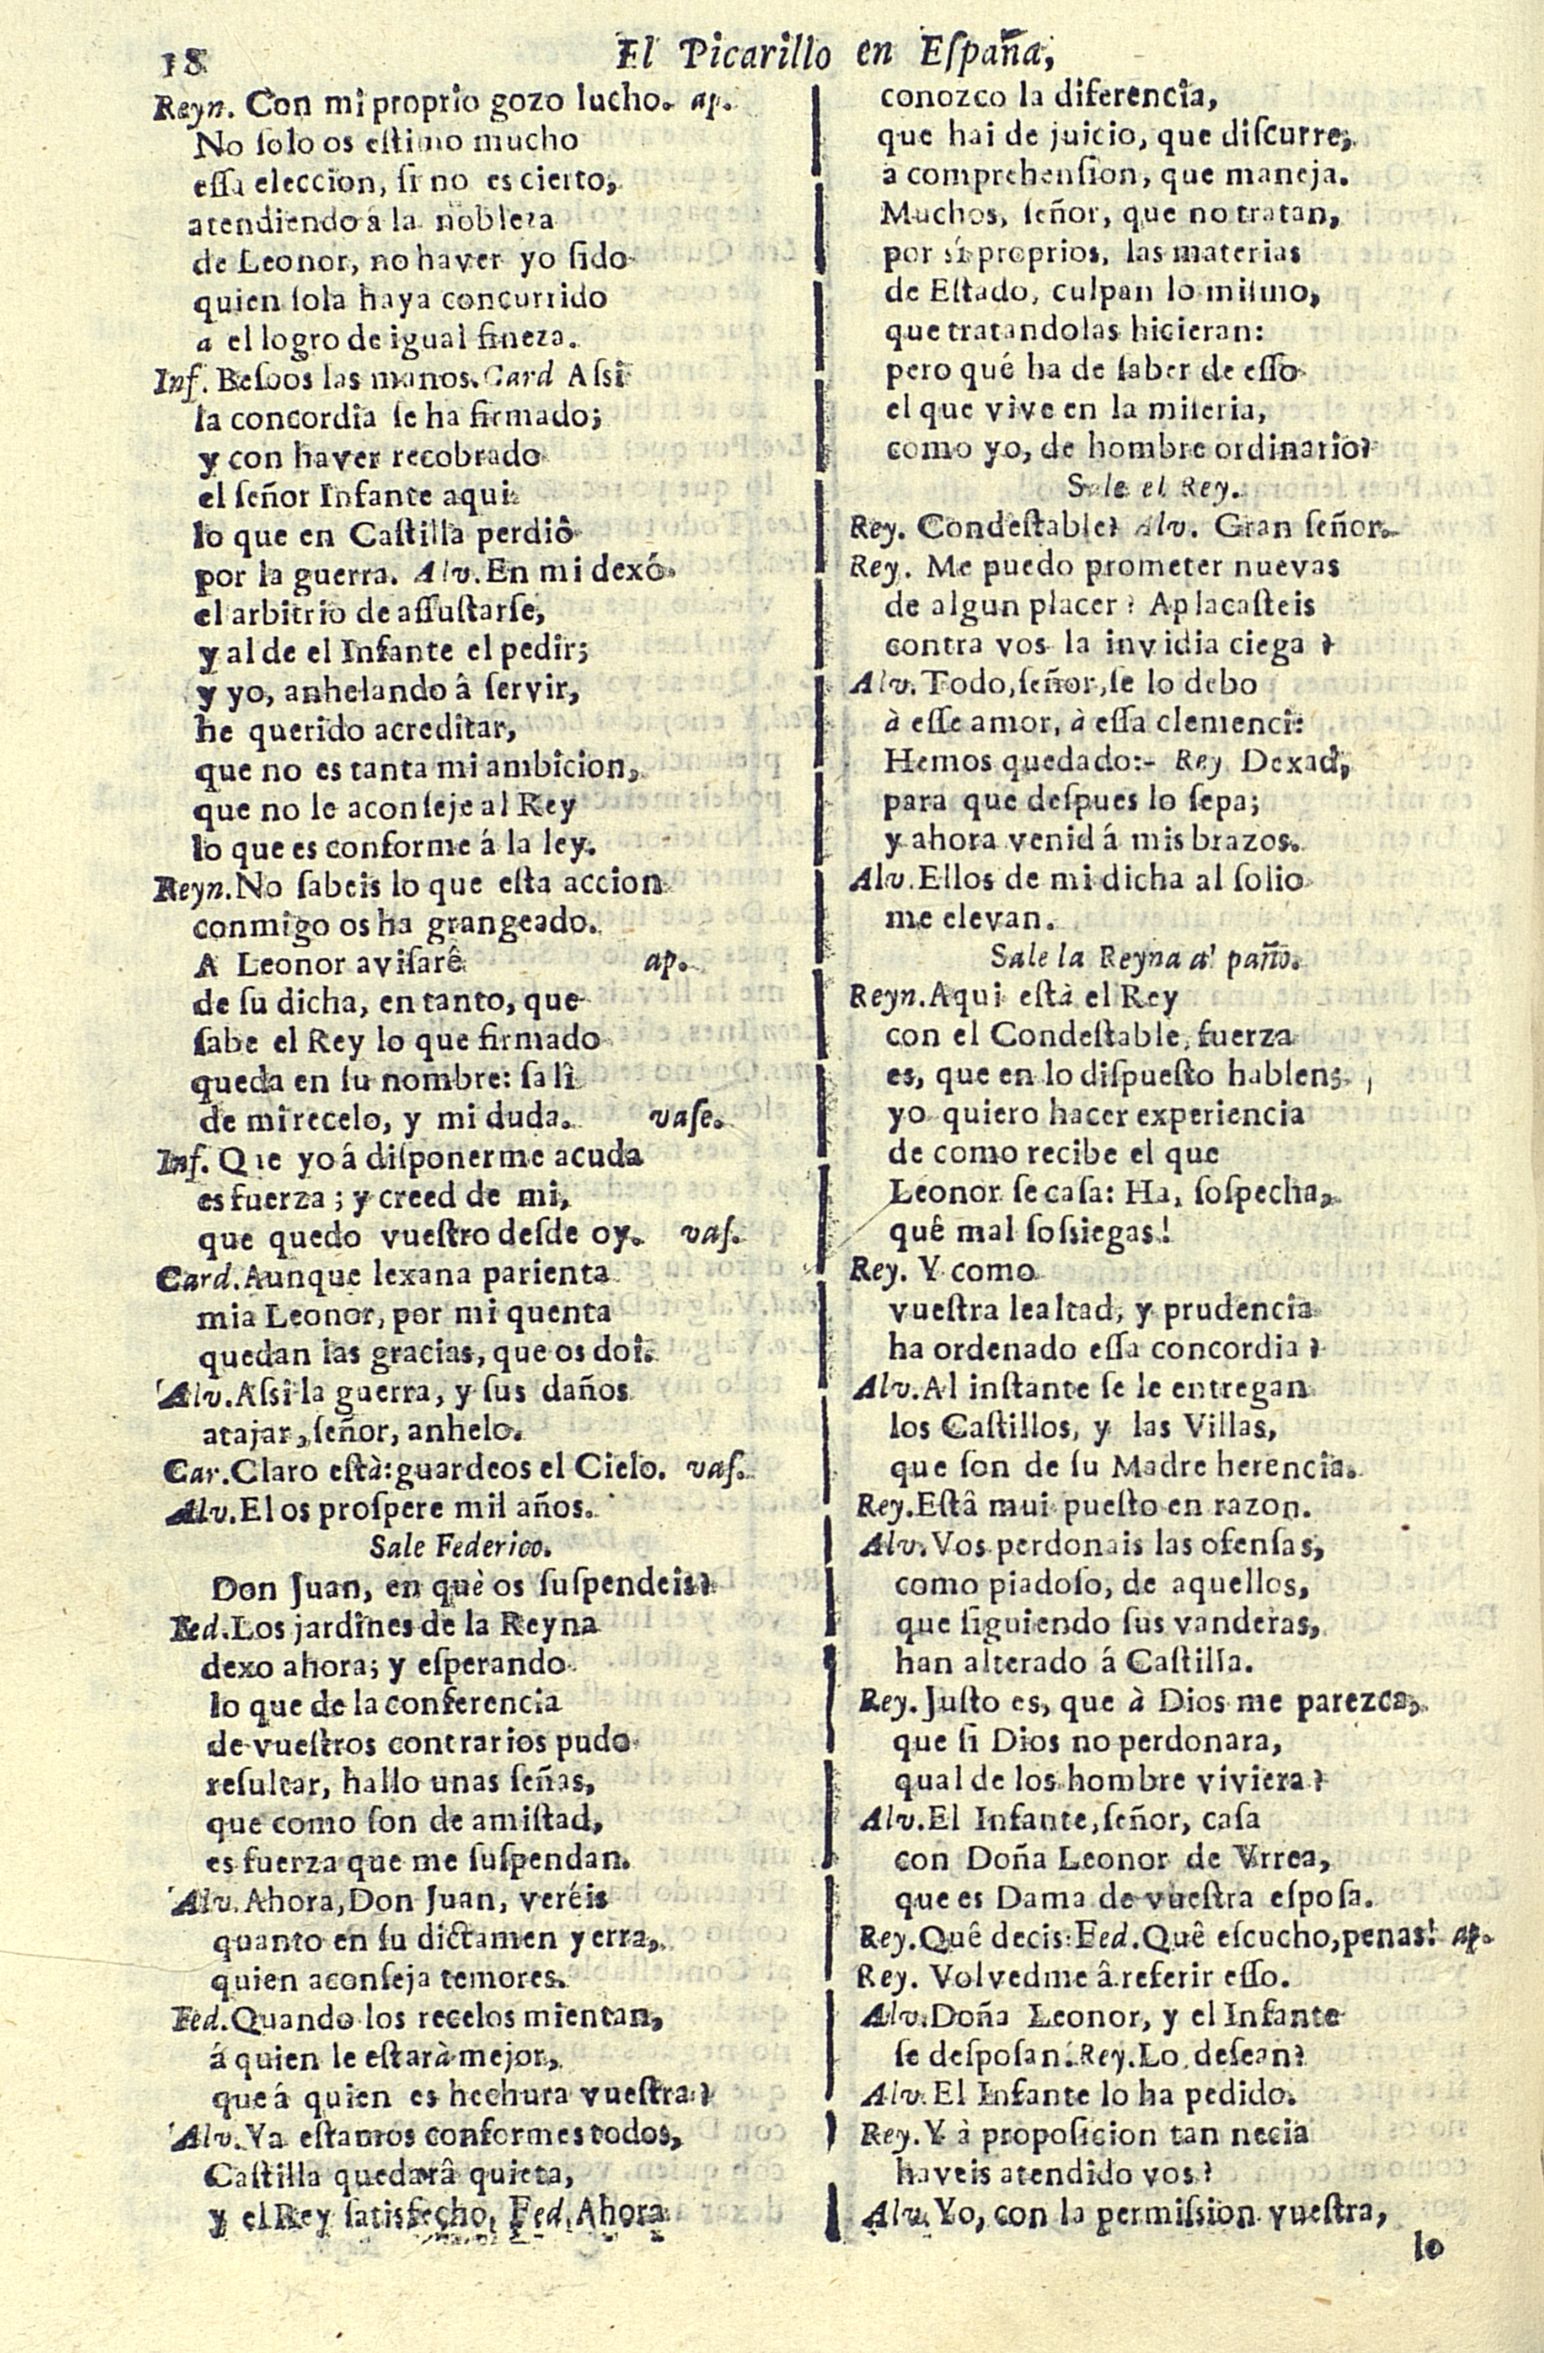 18
El Picarillo en Eſpaña,
Reyn. Con mi proprio gozo lucho. ap.
No ſolo os eſtimo mucho
eſſa eleccion, ſi no es cierto,
atendiendo á la nobleza
de Leonor, no haver yo ſido
quien ſola haya concurrido
a el logro de igual fineza.
Inf. Beſoos las manos. Card Aſsi
la concordia ſe ha firmado;
y con haver recobrado
el ſeñor Infante aqui
lo que en Caſtilla perdiô
por la guerra. Alv. En mi dexó
el arbitrio de aſſuſtarſe,
y al de el Infante el pedir;
y yo, anhelando â ſervir,
he querido acreditar,
que no es tanta mi ambicion,
que no le aconſeje al Rey
lo que es conforme á la ley.
Reyn. No ſabeis lo que eſta accion
conmigo os ha grangeado.
A Leonor aviſarê ap.
de ſu dicha, en tanto, que
ſabe el Rey lo que firmado
queda en ſu nombre: ſalî
de mi recelo, y mi duda. vaſe.
Inf. Que yo á diſponerme acuda
es fuerza; y creed de mi,
que quedo vueſtro deſde oy. vaſ.
Card. Aunque lexana parienta
mia Leonor, por mi quenta
quedan las gracias, que os doi.
Alv. Aſsi la guerra, y ſus daños
atajar, ſeñor, anhelo.
Car. Claro eſtà: guardeos el Cielo. vaſ.
Alv. El os proſpere mil años.
Sale Federico.
Don Juan, en què os ſuſpendeis?
Fed. Los jardines de la Reyna
dexo ahora; y eſperando
lo que de la conferencia
de vueſtros contrarios pudo
reſultar, hallo unas ſeñas,
que como ſon de amiſtad,
es fuerza que me ſuſpendan.
Alv. Ahora, Don Juan, veréis
quanto en ſu dictamen yerra,
quien aconſeja temores.
Fed. Quando los recelos mientan,
á quien le eſtarà mejor,
que á quien es hechura vueſtra?
Alv. Ya eſtamos conformes todos,
Caſtilla quedarâ quieta,
y el Rey ſatisfecho, Fed. Ahora
conozco la diferencia,
que hai de juicio, que diſcurre,
a comprehenſion, que maneja.
Muchos, ſeñor, que no tratan,
por sí proprios, las materias
de Eſtado, culpan lo miſmo,
que tratandolas hicieran:
pero qué ha de ſaber de eſſo
el que vive en la miſeria,
como yo, de hombre ordinario?
Sale el Rey.
Rey. Condeſtable? Alv. Gran ſeñor.
Rey. Me puedo prometer nuevas
de algun placer? Aplacaſteis
contra vos la invidia ciega?
Alv. Todo, ſeñor, ſe lo debo
à eſſe amor, à eſſa clemenci:
Hemos quedado:- Rey Dexad,
para que deſpues lo ſepa;
y ahora venid á mis brazos.
Alv. Ellos de mi dicha al ſolio
me elevan.
Sale la Reyna a' paño.
Reyn. Aqui eſtà el Rey
con el Condeſtable, fuerza
es, que en lo diſpueſto hablens
yo quiero hacer experiencia
de como recibe el que
Leonor ſe caſa: Ha, ſoſpecha,
quê mal ſoſsiegas!
Rey. Y como
vueſtra lealtad, y prudencia
ha ordenado eſſa concordia?
Alv. Al inſtante ſe le entregan
los Caſtillos, y las Villas,
que ſon de ſu Madre herencia.
Rey. Eſtâ mui pueſto en razon.
Alv. Vos perdonais las ofenſas,
como piadoſo, de aquellos,
que ſiguiendo ſus vanderas,
han alterado á Caſtilla.
Rey. Juſto es, que à Dios me parezca,
que ſi Dios no perdonara,
qual de los hombre viviera?
Alv. El Infante, ſeñor, caſa
con Doña Leonor de Vrrea,
que es Dama de vueſtra eſpoſa.
Rey. Quê decis: Fed. Quê eſcucho, penas! ap.
Rey. Volvedme â referir eſſo.
Alv. Doña Leonor, y el Infante
ſe deſpoſan. Rey. Lo deſean?
Alv. El Infante lo ha pedido.
Rey. Y à propoſicion tan necia
haveis atendido vos?
Alv. Yo, con la permiſsion vueſtra,
lo